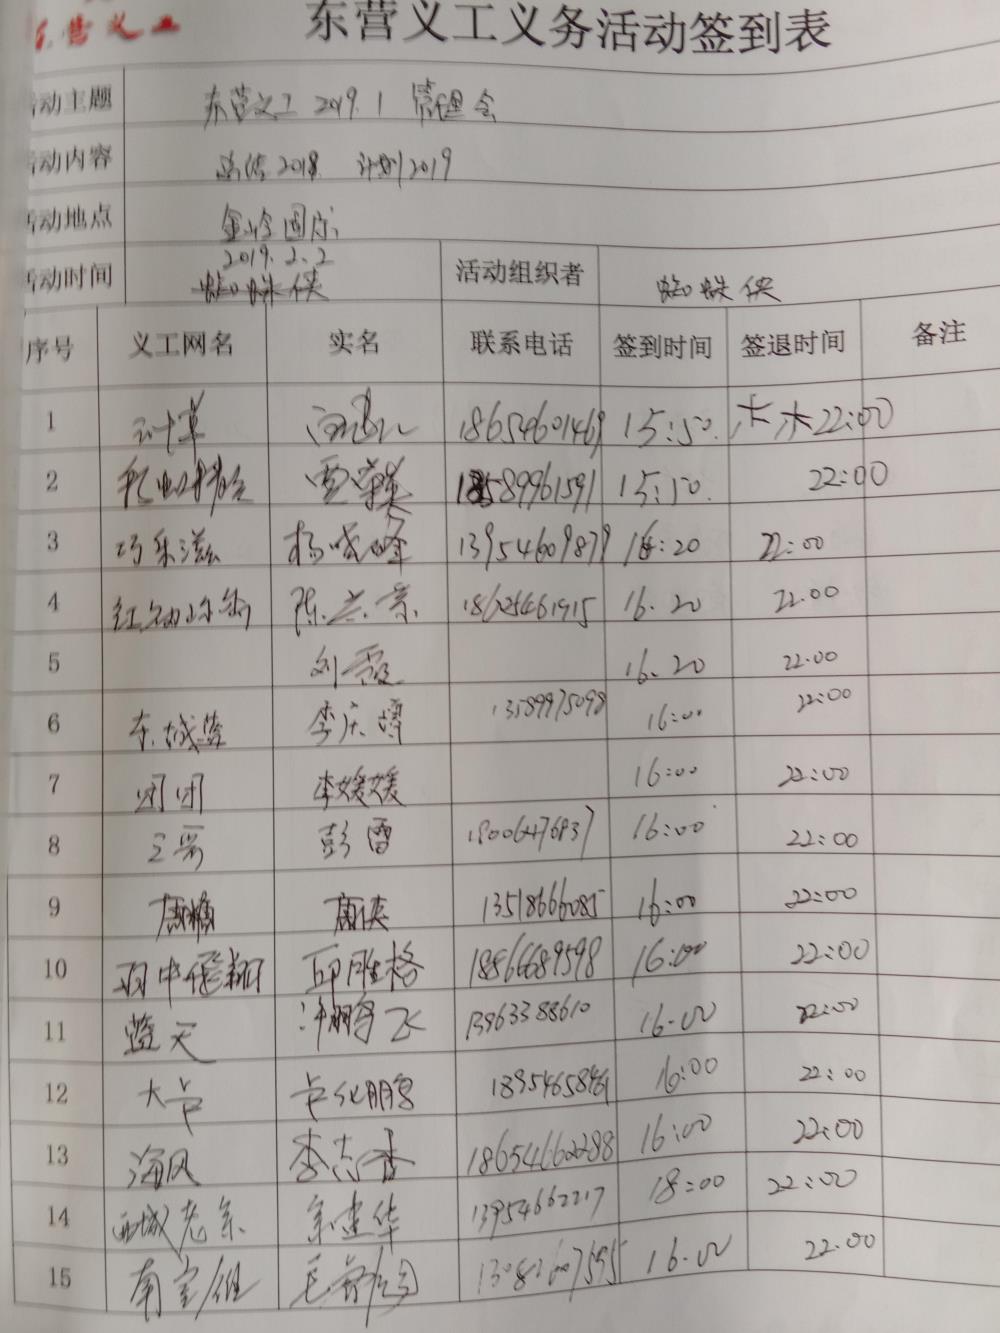 东营义工
东营义工义务活动签到表
活动主题 东营义工 2019.1 管理会
活动内容 总结2018 计划2019
活动地点
活动时间 2019.2.2 蜘蛛侠 活动组织者 蜘蛛侠
序号 义工网名 实名 联系电话 签到时间 签退时间 备注
1 18654601469 15:50. 22:00
2 18589961591 15:50. 22:00
3 巧乐滋 杨晓峰 13954609879 16:20 22:00
4 陈兰景 18625461915 16.20 22.00
5 刘霞 16.20 22.00
6 东城蓝 李庆 13589975098 16:00 22:00
7 团团 李媛媛 16:00 22:00
8 彭雷 18006476837 16:00 22:00
9 13518666085 16:00 22:00
10 雨中飞翔 邱胜格 18866689598 16:00 22:00
11 蓝天 鹏飞 13963388610 16.00 22:00
12 大卡 卡化鹏 18954658461 16:00 22:00
13 海风 李志香 18654662288 16:00 22:00
14 西城老余 余建华 13954662217 18:00 22:00
15 13082607595 16.00 22.00